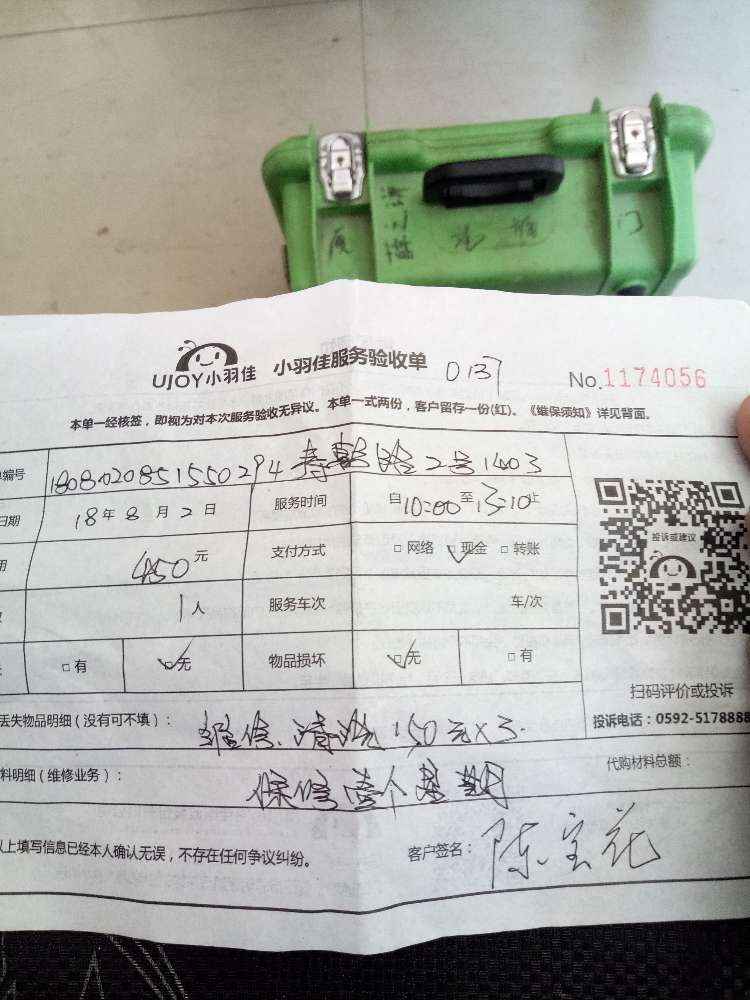 厦 门
UJOY小羽佳 小羽佳服务验收单 0137 No.1174056
本单一经核签，即视为对本次服务验收无异议。本单一式两份，客户留存一份(红)。《维保须知》详见背面。
编号 1808020851550294 2号1403
日期 18年8月2日 服务时间 自10:00至13:10止
用 450元 支付方式 □网络 □现金 □转账
1人 服务车次 车/次
□有 □无 物品损坏 □无 □有
投诉或建议
扫码评价或投诉
投诉电话：0592-5178888
丢失物品明细（没有可不填）： 维修、清洗150元×3.
料明细（维修业务）： 保修壹个星期 代购材料总额：
以上填写信息已经本人确认无误，不存在任何争议纠纷。 客户签名：陈宝花